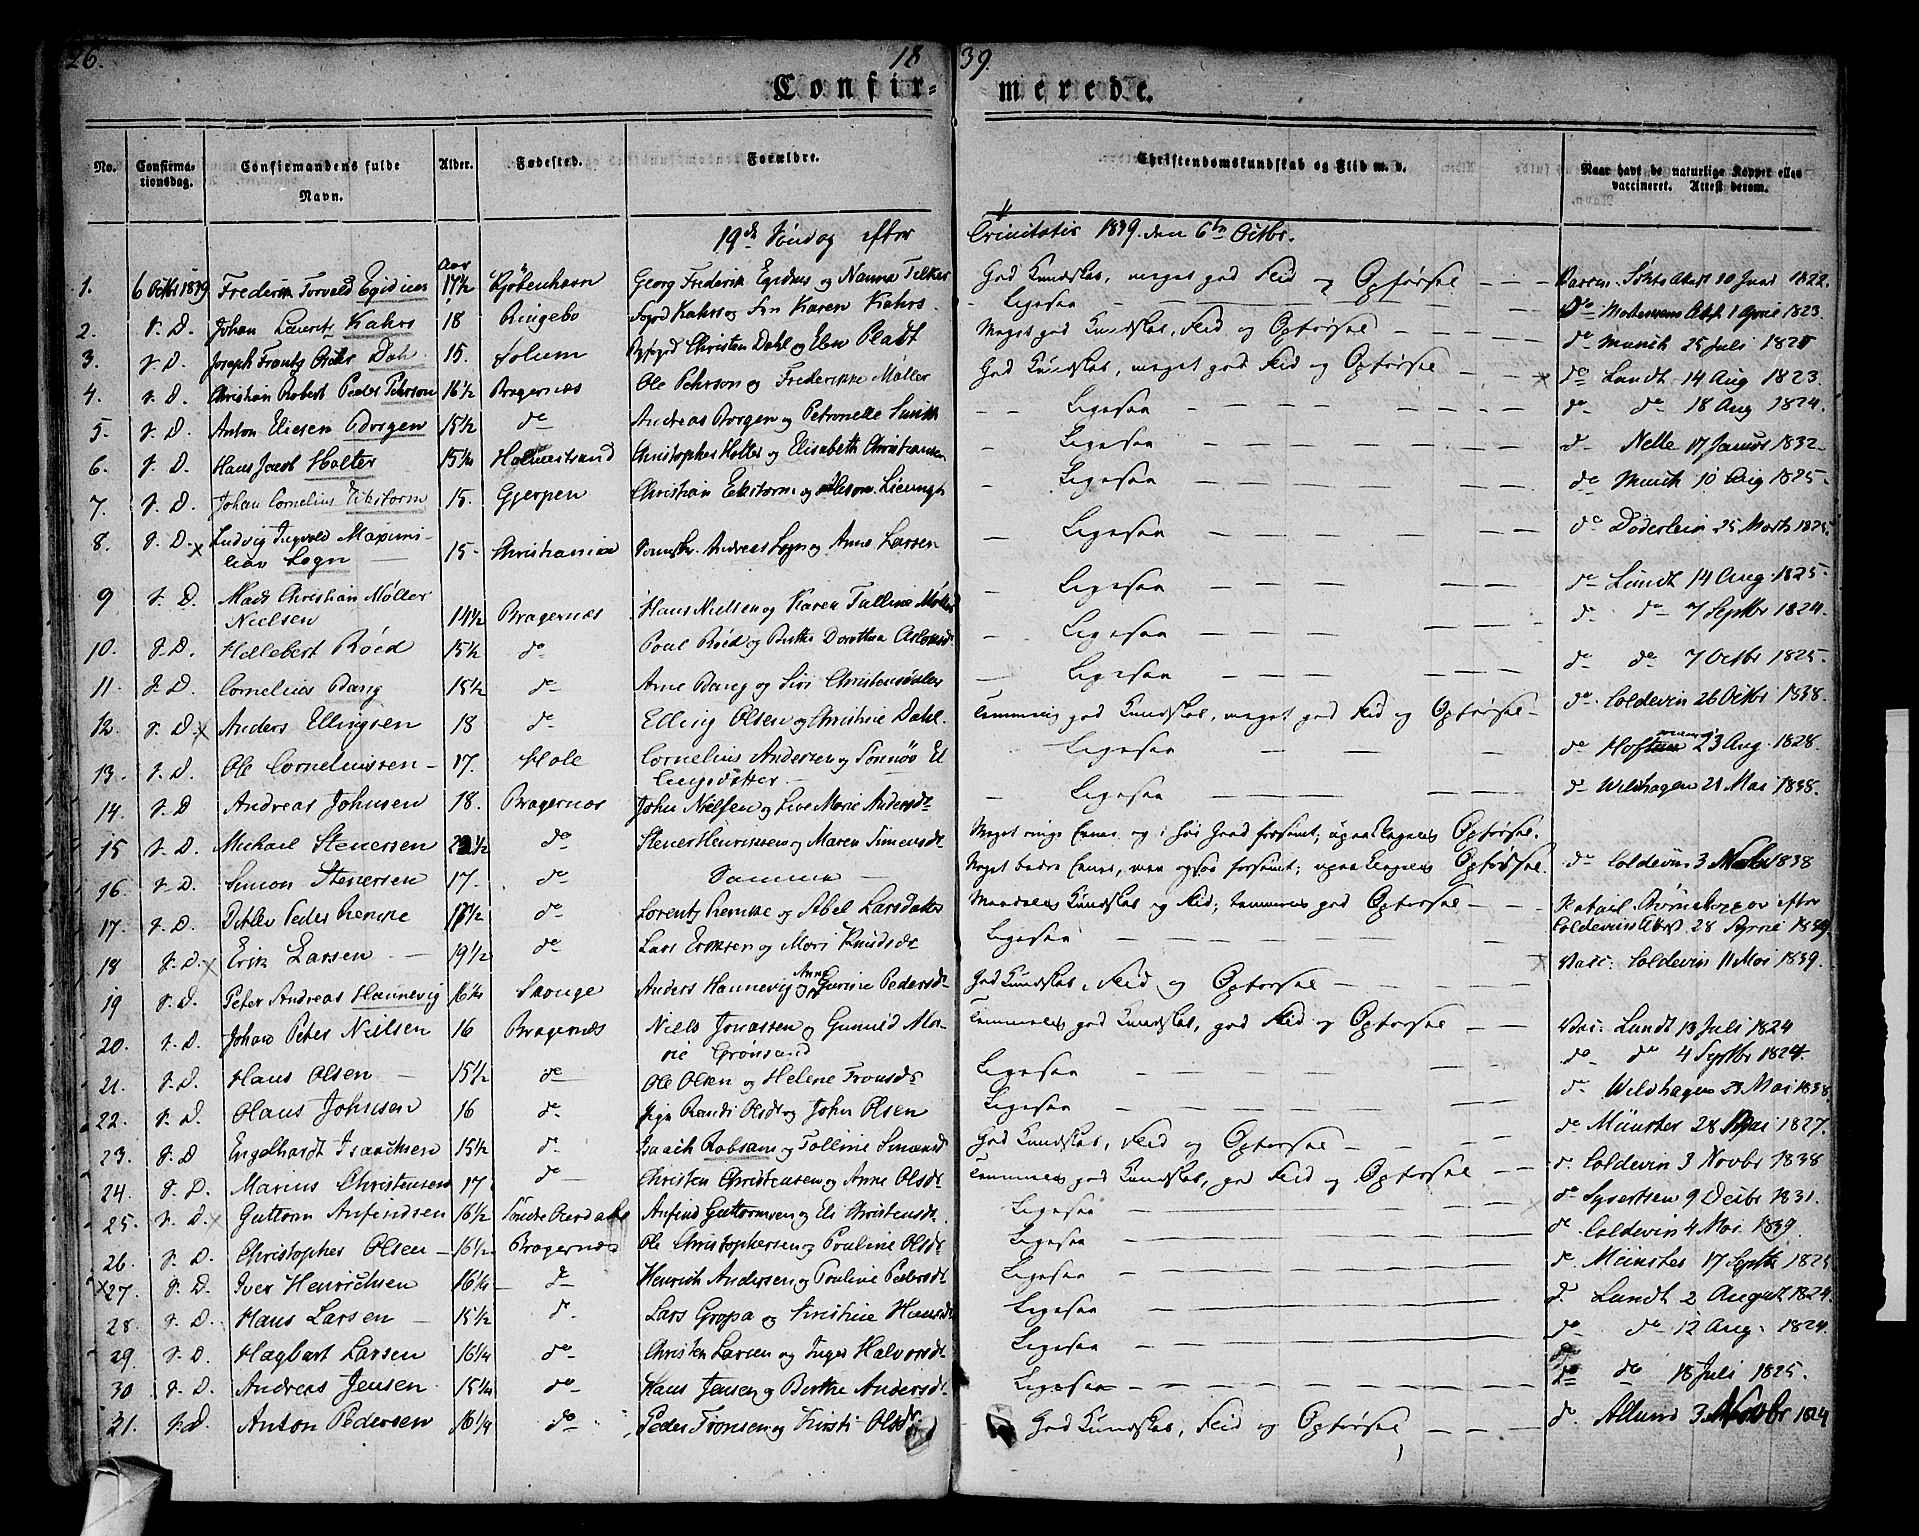 26.
18
39.
Confir-
merede.
No.
Confirma-
tionsdag.
Confirmandens fulde
Navn.
Alder.
Fødested.
Forældre.
Christendomskundskab og Flid m. v.
Naar havt de naturlige Kopper eller
vaccineret. Attest derom.
19de Søndag efter
Trinitatis 1839. den 6te Octbr.
Aar
1. 6 Octbr 1839 Frederik Torvald Egidius 17½ Kjöbenhavn Georg Frederik Egidius og Nanna God Kundskab, meget god Flid og Opførsel — — 10 Juni 1822.
2. S. D. Johan Lauritz Kahrs 18 Ringebo Karen Kahrs - Ligesaa — — — Do Mortensens Att. 1 April 1823.
3. S. D. Joseph Frantz Dahl 15. Solum Christen Dahl og Elen Platt Meget god Kundskab, Flid og Opførsel — — — do Munch 25 Juli 1825
4. S. D. Christian Robert Peder Pehrson 16½ Bragernæs Ole Pehrson og Frederikke Møller God Kundskab, meget god Flid og Opførsel — — x do Lundt 14 Aug 1823.
5. S. D. Anton Eliesen Borgen 15½ do Andreas Borgen og Petronelle — — Ligesaa — — — do do 18 Aug 1824.
6. S. D. Hans Jacob Holter 15¼ Holmestrand Christopher Holter og Elisabeth Christiansen — Ligesaa — — — do Nelle 17 Januar 1832
7. S. D. Johan Cornelius Eckstorm 15. Gjerpen Christian Eckstorm og — Ligesaa — — — do Munch 10 Aug 1825.
8. S. D. x Ludvig Ingvald Maximi-
lian Sogn — 15 - Christiania Andreas Sogn og Anne Larsen — Ligesaa — — — do Döderlein 25 Marts 1825.
9 S. D. Mads Christian Møller
Nielsen 14½ Bragernæs Hans Nielsen og Karen Talline Møller — Ligesaa — — — do Lundt 14 Aug. 1825.
10. S. D. Hellebert Röed 15½ do Poul Röed og Berthe Dorothea — Ligesaa — — — do do 7 Septbr 1824.
11. S. D. Cornelius Bang 15½ do Arne Bang og Siri — Ligesaa — — — do do 7 Octbr 1825.
12. S. D. x Anders Ellingsen 18 do Elling Olsen og Christine Dahl. Temmelig god Kundskab, meget god Flid og Opførsel — do Coldevin 26 Octbr 1838.
13. S. D. Ole Corneliussen — 17. Hole Cornelius Andersen og El
lingsdatter — Ligesaa — — — do 23 Aug. 1828.
14. S. D Andreas Johnsen 18. Bragernæs John Nielsen og Live Marie Andersdr — Ligesaa — — — do Wildhagen 21 Mai 1838.
15 S. D. Michael Stenersen do Stener Henriksen og Maren Simensdr Meget ringe Evner, og i høi Grad forsømt; upaaklagelig Opførsel.
16. S. D. Simon Stenersen 17. do Samme — Noget bedre Evner, men ogsaa forsømt; upaaklagelig Opførsel. do Coldevin 3 Novbr 1838
17. S. D. Detlev Peder Remke 17½ do Lorentz Remke og Abel Larsdatter Maadelig Kundskab og Flid; temmelig god Opførsel — — Coldevins Attest 28 1839
18 S. D. x Erik Larsen — 19½ do Lars Eriksen og Mari Knudsdr Ligesaa — — — x Vacc: Coldevin 11 Mai 1839.
19 S. D. Peter Andreas Hannevig 16¼ Anders Hannevig og Anne Gurine Pedersdr God Kundskab, Flid og Opførsel — — —
20. S. D. Johan Peter Nielsen 16 Bragernæs Niels Jonassen og Gunild Ma-
rie Grönsand Temmelig god Kundskab, god Flid og Opførsel — — Vac: Lundt 13 Juli 1824
21. S. D. Hans Olsen — 15½ do Ole Olsen og Helene Ligesaa — — — do do 4 Septbr 1824.
22. S. D. Olaus Johnsen 16 do Randi Olsdr og John Olsen Ligesaa — — — do Wildhagen 23 Mai 1838.
23. S. D Engelhardt Isaachsen 15½ do Isaach Robsam og Talline God Kundskab, Flid og Opførsel — — do Münster 28 Mai 1827.
24. S. D. Marius Christensen 17 do — Christen Christensen og Anne Olsdr Temmelig god Kundskab, god Flid og Opførsel — — do Coldevin 3 Novbr 1838
25. S. D. x Guttorm Anfindsen 16½ Söndre Aurdal Anfind Guttormsen og Eli Christensdr. Ligesaa — — — x do Syvertsen 9 Decbr 1831.
26. S. D. Christopher Olsen — 16½ Bragernæs Ole Christophersen og Pauline Olsdr Ligesaa — — — do Coldevin 4 Mai 1839.
x 27. S. D. Iver Henrichsen 16¼ do Henrich Andersen og Pauline Pedersdr Ligesaa — — — do Münster 17 Septbr
28. S. D. Hans Larsen — 15½ do Lars Gropa og Kirstine Hansdr Ligesaa — — — do Lundt 2 August 1824.
29. S. D. Hagbart Larsen 16¼ do Christen Larsen og Inger Halvorsdr Ligesaa — — — do do 12 Aug. 1824.
30 S. D. Andreas Jensen 15¼ do Hans Jensen og Berthe Andersdr Ligesaa — — — do do 18 Juli 1825.
31. S. D. Anton Pedersen 16¼ do Peder og Kirsti Olsdr God Kundskab, Flid og Opførsel — — — do 3 Novbr 1824